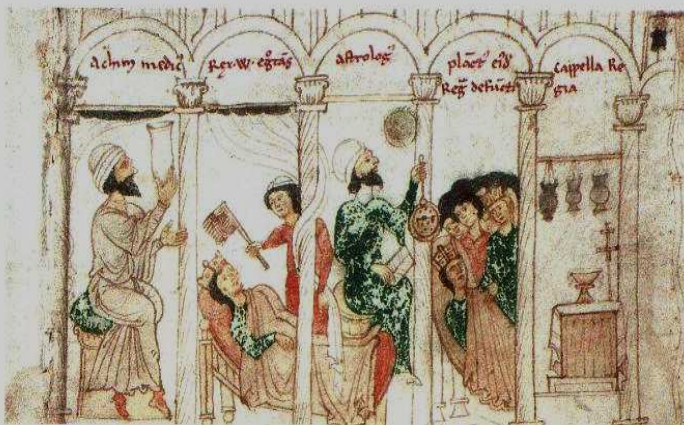 Achim medic⁹
Rex .W. egrotās
Astrolog⁹
plāct⁹ eidē
Reḡ defūcti
Cappella Re
gia